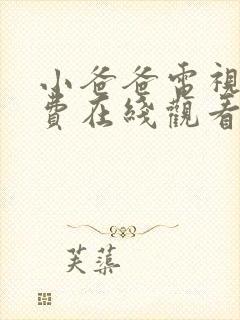 小爸爸電視
費在綫觀看
芙蕖